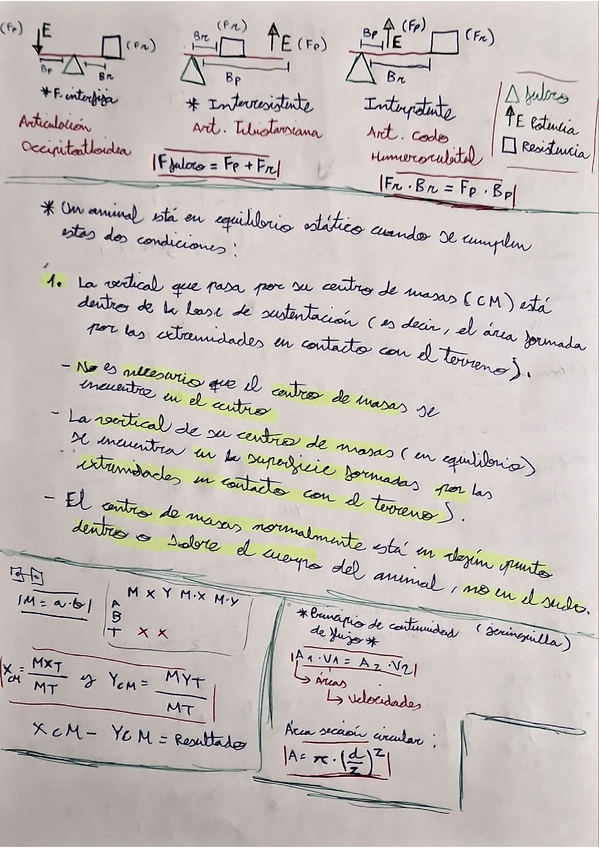 (Fp) E (Fr) Bp Br
* F. interfija
Articulación
Occipitoatloidea
(Fr) Br E (Fp) Bp
* Interresistente
Art. Tibiotarsiana
|F fulcro = Fp + Fr|
Bp (Fp) E (Fr) Br
Interpotente
Art. codo
Humerocubital
|Fr · Br = Fp · Bp|
△ fulcro
↑ E Potencia
□ Resistencia
* Un animal está en equilibrio estático cuando se cumplen
estas dos condiciones:
1. La vertical que pasa por su centro de masas (CM) está
dentro de la base de sustentación (es decir, el área formada
por las extremidades en contacto con el terreno).
- No es necesario que el centro de masas se
encuentre en el centro
- La vertical de su centro de masas (en equilibrio)
se encuentra en la superficie formadas por las
extremidades en contacto con el terreno).
- El centro de masas normalmente está en algún punto
dentro o sobre el cuerpo del animal, no en el suelo.
|M = a·b|
M X Y M·X M·Y
A
B
T x x
X cM = MXT / MT y Y cM = MYT / MT
X cM - Y cM = Resultado
* Principio de continuidad (jeringuilla)
de flujo *
|A1 · V1 = A2 · V2|
↳ Áreas
↳ Velocidades
Área sección circular:
|A = π · (d/2)²|